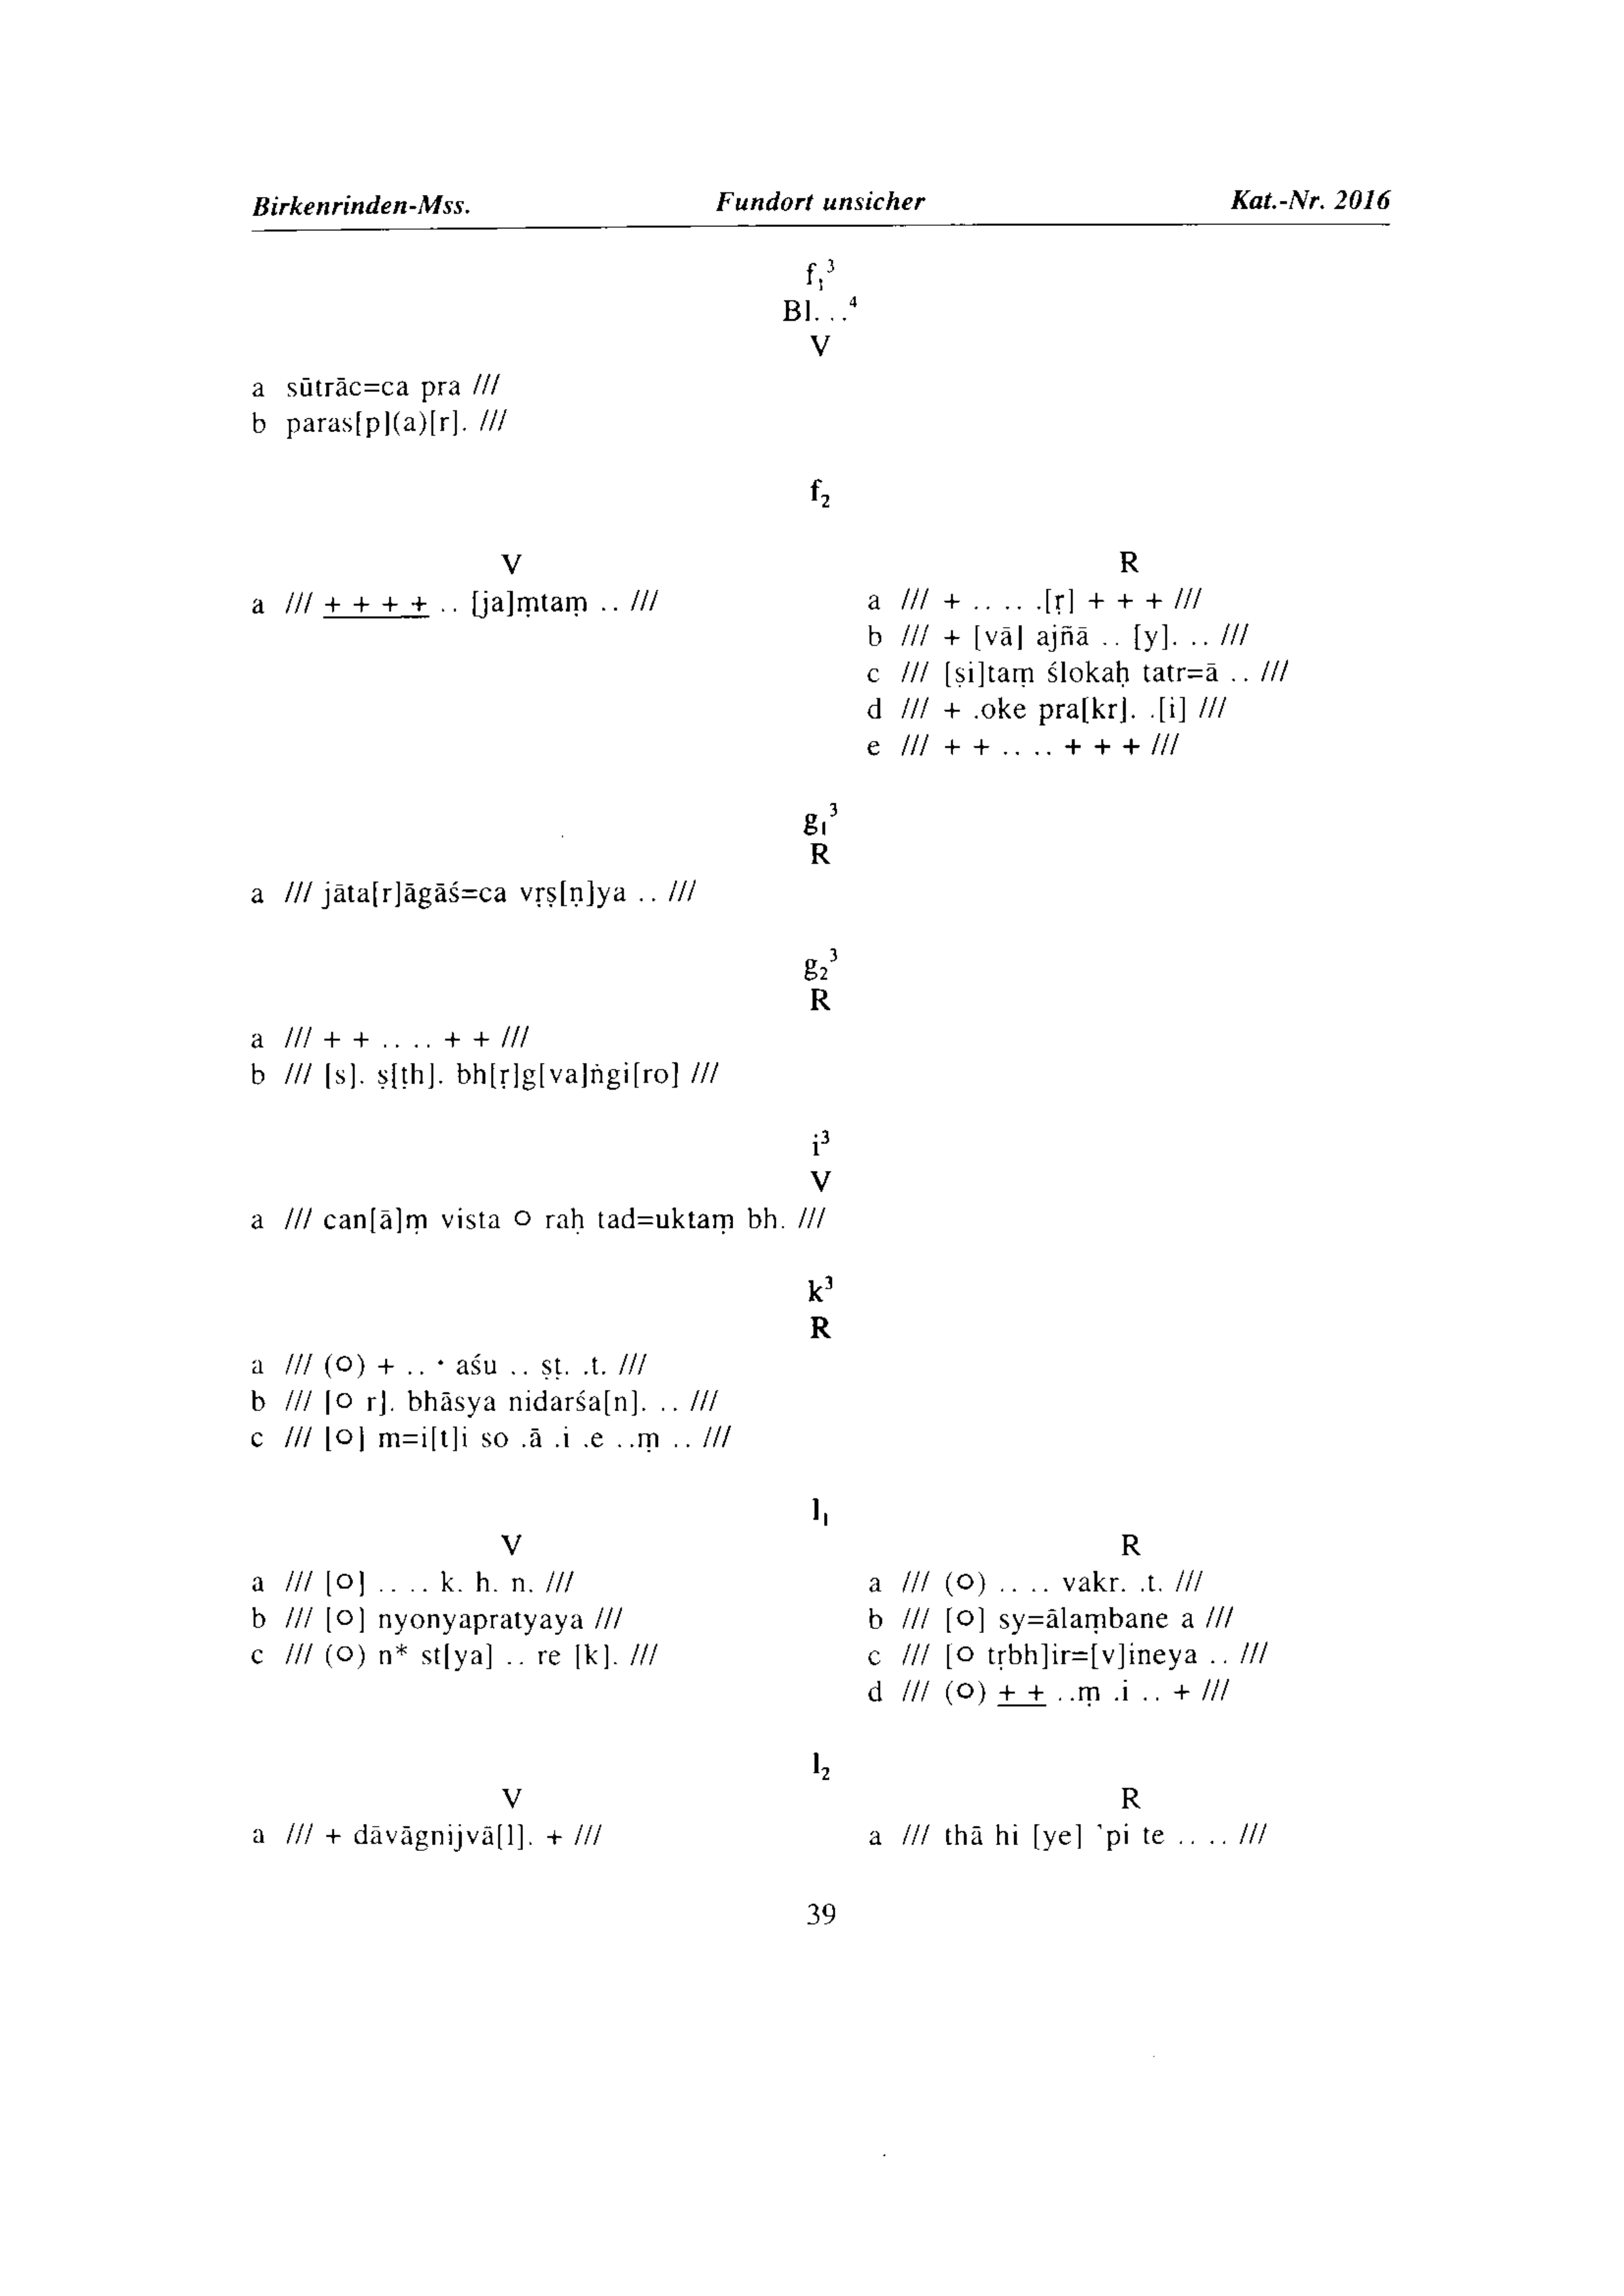 Birkenrinden-Mss. Fundort unsicher Kat.-Nr. 2016
f₁³
Bl. ..⁴
V
a sūtrāc=ca pra ///
b paras[p](a)[r]. ///
f₂
V R
a /// + + + + .. [ja]ṃtaṃ .. ///
a /// + .. .. .[ṛ] + + + ///
b /// + [vā] ajñā .. [y]. .. ///
c /// [ṣi]taṃ ślokaḥ tatr=ā .. ///
d /// + .oke pra[kr]. .[i] ///
e /// + + .. .. + + + ///
g₁³
R
a /// jāta[r]āgāś=ca vṛṣ[ṇ]ya .. ///
g₂³
R
a /// + + .. .. + + ///
b /// [s]. ṣ[ṭh]. bh[ṛ]g[va]ṅgi[ro] ///
i³
V
a /// can[ā]ṃ vista ○ raḥ tad=uktaṃ bh. ///
k³
R
a /// (○) + .. · aśu .. ṣṭ. .t. ///
b /// [○ r]. bhāsya nidarśa[n]. .. ///
c /// [○] m=i[t]i so .ā .i .e ..ṃ .. ///
l₁
V
a /// [○] .. .. k. h. n. ///
b /// [○] nyonyapratyaya ///
c /// (○) n* st[ya] .. re [k]. ///
R
a /// (○) .. .. vakr. .t. ///
b /// [○] sy=ālaṃbane a ///
c /// [○ tṛbh]ir=[v]ineya .. ///
d /// (○) + + ..ṃ .i .. + ///
l₂
V
a /// + dāvāgnijvā[l]. + ///
R
a /// thā hi [ye] 'pi te .. .. ///
39